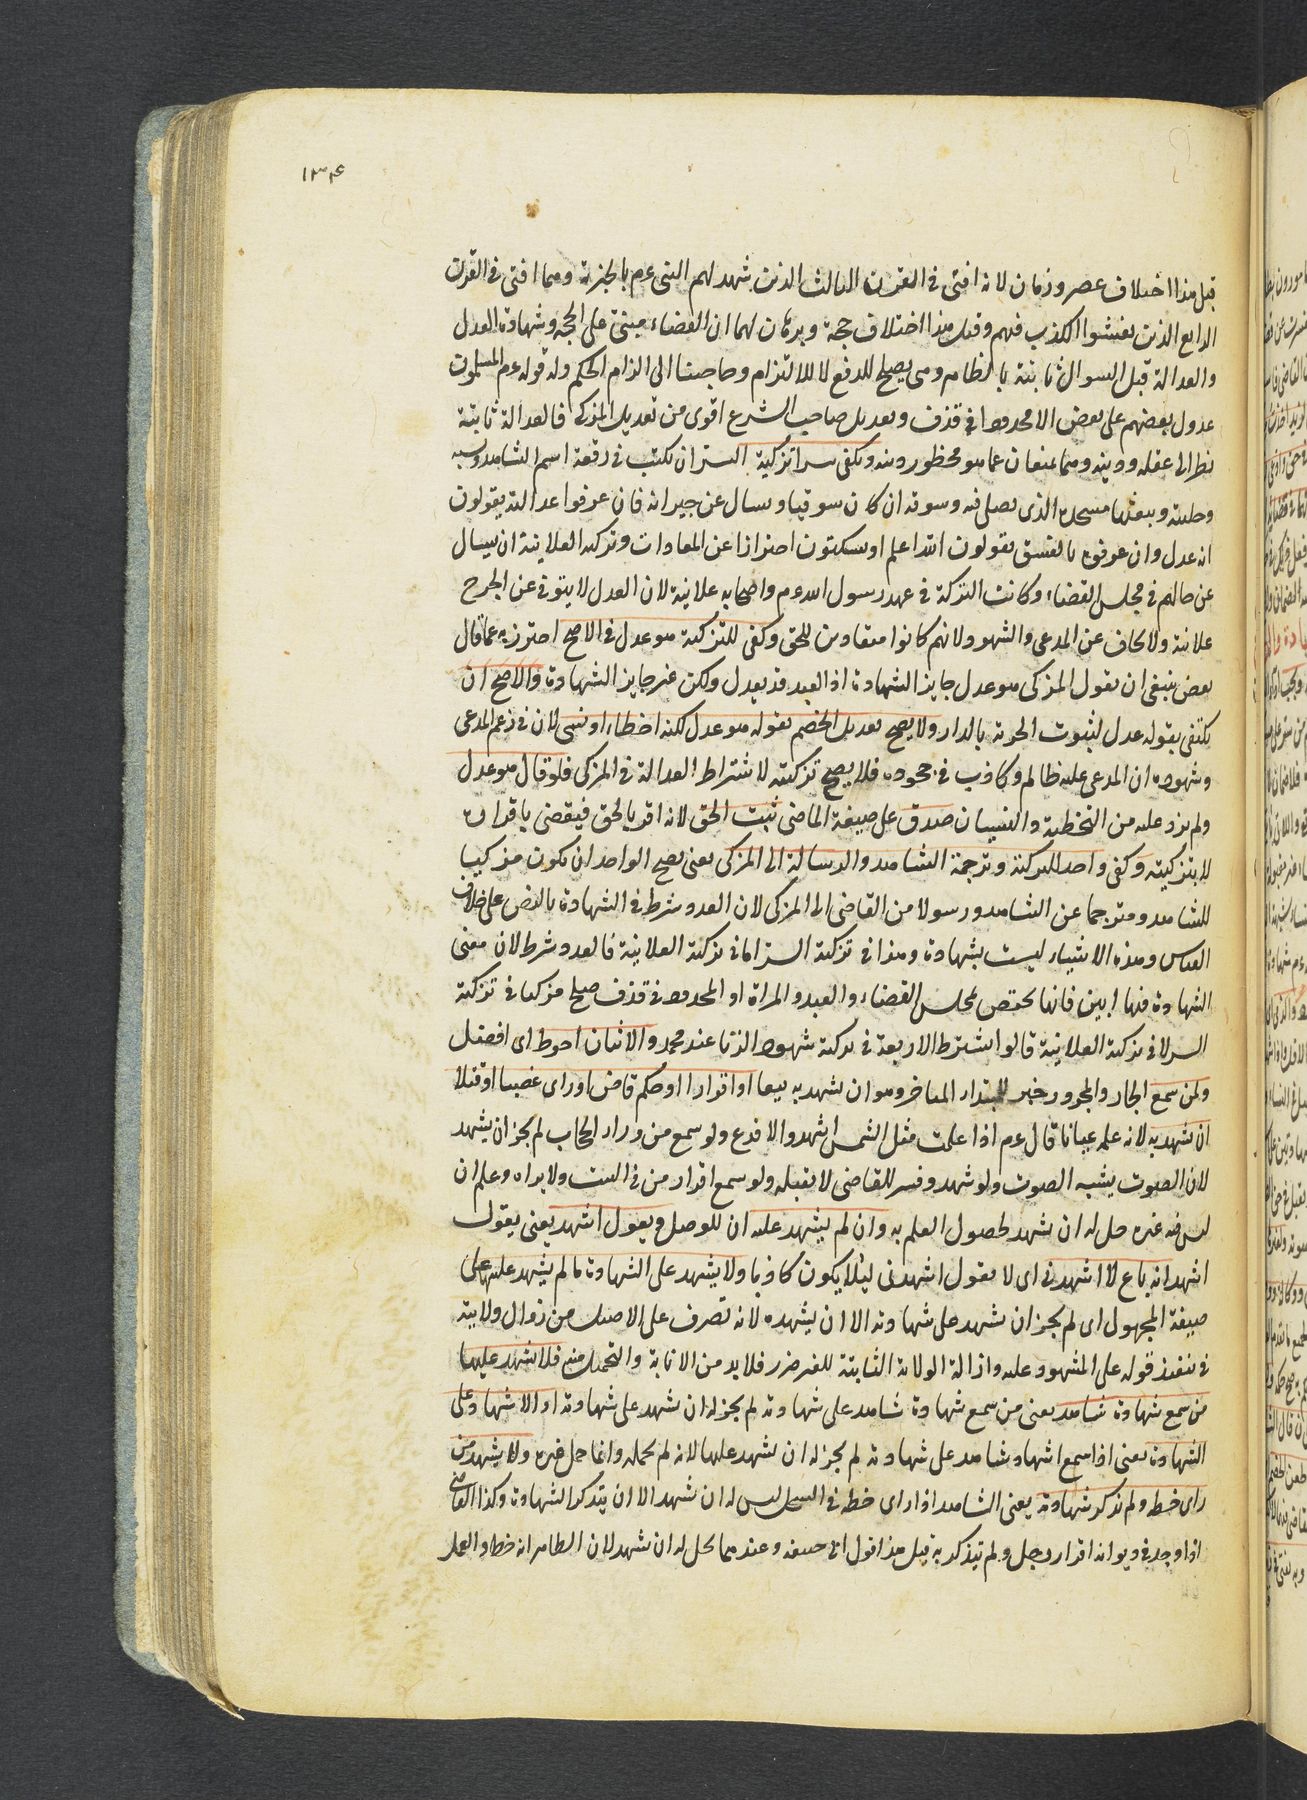 ١٣۴
قبل هذا اختلاف عصر وزمان لانه افتى فى القرن الثالث الذين شهد لهم النبى عم بالخيرية وهما افتى فى القرن
الرابع الذين يفشوا الكذب فيهم وقيل هذا اختلاف حجة وبرهان لهما ان القضاء مبنى على الحجة وشهادة العدل
والعدالة قبل السوال ثابتة بالظاهر وهى يصلح للدفع لا للالتزام وحاجتنا الى الزام الحكم وله قوله عم المسلمون
عدول بعضهم على بعض الا محدودا فى قذف وتعديل صاحب الشرع اقوى من تعديل المزكى فالعدالة ثابتة
نظرا الى عقله ودينه وهما يمنعان عما هو محظور دينه ويكفى سرا تزكية السر ان يكتب فى رقعة اسم الشاهد ونسبه
وحليته ويبعثها مسجده الذى يصلى فيه وسوقه ان كان سوقيا ويسال عن جيرانه فان عرفوا عدالته يقولون
انه عدل وان عرفوه بالفسق يقولون الله اعلم او يسكتون احترازا عن المعادات وتزكية العلانية ان يسال
عن حالهم فى مجلس القضاء وكانت التزكية فى عهد رسول الله عم واصحابه علانية لان العدل لا يتوقى عن الجرح
علانية ولا يخاف عن المدعى والشهود ولانهم كانوا منقادين للحق وكفى للتزكية هو عدل فى الاصح احترز به عما قال
بعض ينبغى ان يقول المزكى هو عدل جايز الشهادة اذ العبد قد يعدل ولكن غير جايز الشهادة والاصح ان
يكتفى بقوله عدل لثبوت الحرية بالدار ولا يصح تعديل الخصم بقوله هو عدل لكنه اخطاء او نسى لان فى زعم المدعى
وشهوده ان المدعى عليه ظالم وكاذب فى جحوده فلا يصح تزكيته لاشتراط العدالة فى المزكى فلو قال هو عدل
ولم يزد عليه من التخطية والنسيان صدق على صيغة الماضى ثبت الحق لانه اقر بالحق فيقضى باقراره
لا بتزكيته وكفى واحد للتزكية وترجمة الشاهد والرسالة الى المزكى يعنى يصح الواحد ان يكون مزكيا
للشاهد ومترجما عن الشاهد ورسولا من القاضى الى المزكى لان العدد شرط فى الشهادة بالنص على خلاف
القياس وهذه الاشياء ليست بشهادة وهذا فى تزكية السر اما فى تزكية العلانية فالعدد شرط لان معنى
الشهادة فيها ابين فانها يختص بمجلس القضاء والعبد والمراة او المحدود فى قذف صلح مزكيا فى تزكية
السر لا فى تزكية العلانية قالوا يشترط الاربعة فى تزكية شهود الزنا عند محمد والاثنان احوط اى افضل
ولمن سمع الجار والمجرور خبر للمبتداء المتاخر وهو ان يشهد به بيعا او اقرارا او حكم قاض او راى غصبا او قتلا
ان يشهد به لانه علمه عيانا قال عم اذا علمت مثل الشمس اشهد والا فدع ولو سمع من وراء الحجاب لم يجز ان يشهد
لان الصوت يشبه الصوت ولو شهد وفسر للقاضى لا يقبله ولو سمع اقرار من فى البيت ولا يراه وعلم ان
ليس فيه غيره حل له ان يشهد لحصول العلم به وان لم يشهد عليه ان للوصل ويقول اشهد يعنى يقول
اشهد انه باع لا اشهدنى اى لا يقول اشهدنى ليلا يكون كاذبا ولا يشهد على الشهادة ما لم يشهد عليها على
صيغة المجهول اى لم يجز ان يشهد على شهادته الا ان يشهده لانه تصرف على الاصل من زوال ولاية
فى تنفيذ قوله على المشهود عليه وازالة الولاية الثابتة للغير ضرر فلا بد من الانابة والتحميل منه فلا يشهد عليها
من سمع شهادة شاهد يعنى من سمع شهادة شاهد على شهادته لم يجز له ان يشهد على شهادته او الاشهاد على
الشهادة يعنى اذا سمع اشهاد شاهد على شهادته لم يجز له ان يشهد عليها لانه لم يحمله وانما حمل غيره ولا يشهد من
راى خطه ولم يذكر شهادته يعنى الشاهد اذا راى خطه فى السجل ليس له ان يشهد الا ان يتذكر الشهادة وكذا القاضى
اذا وجد فى ديوانه اقرار رجل ولم يتذكر به قيل هذا قول ابى حنيفة وعندهما يحل له ان يشهد لان الظاهر انه خطه والعمل